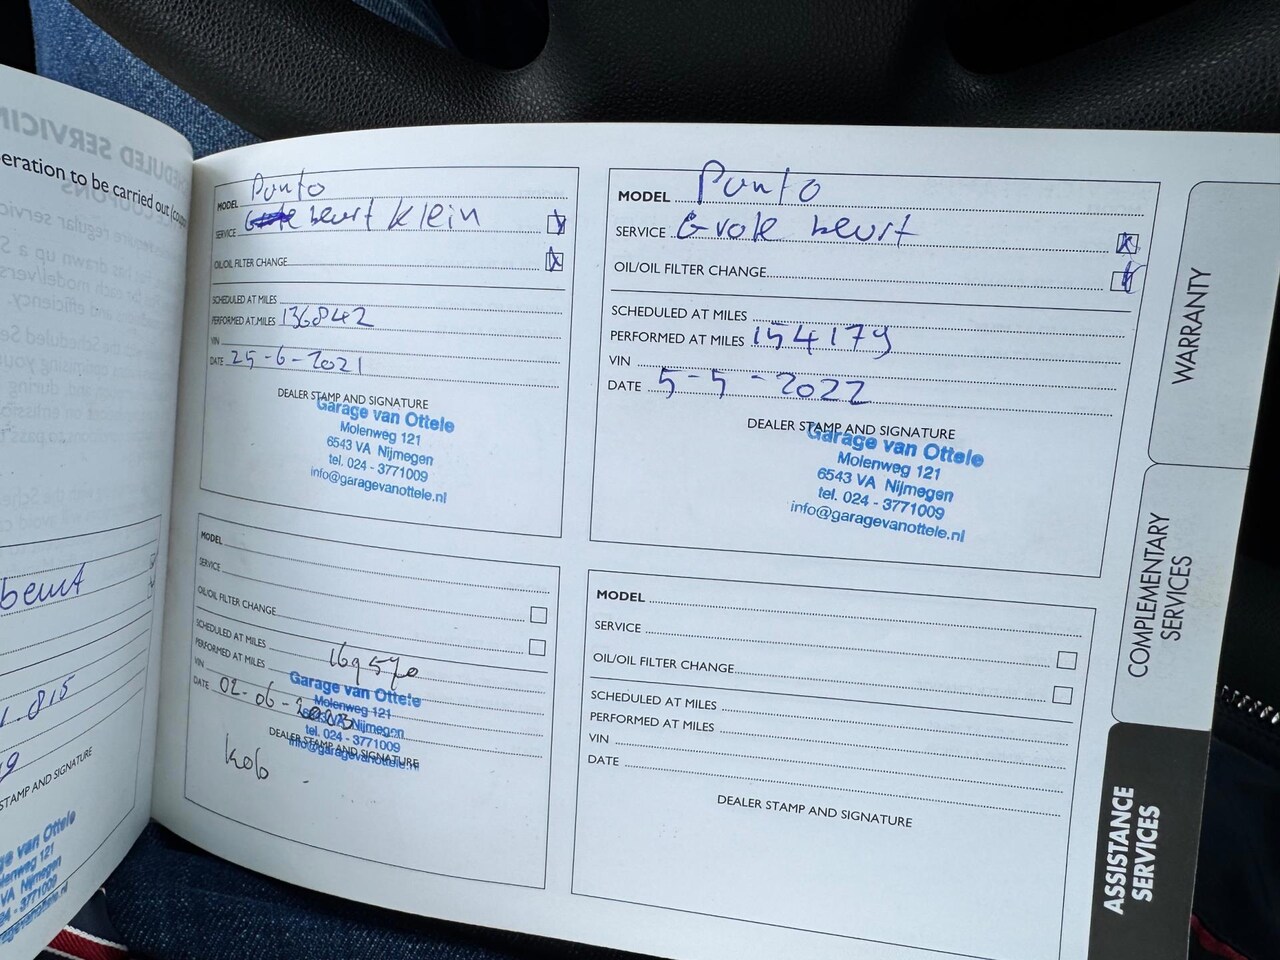 SCHEDULED SERVICIN
COUPONS
eration to be carried out (coup
beurt
1.815
9
STAMP AND SIGNATURE
ge van Ottele
lenweg 121
VA Nijmegen
24 - 3771009
garagevanottele.nl
MODEL Punto
SERVICE Grote beurt klein
OIL/OIL FILTER CHANGE
SCHEDULED AT MILES
PERFORMED AT MILES 136842
VIN
DATE 25-6-2021
DEALER STAMP AND SIGNATURE
Garage van Ottele
Molenweg 121
6543 VA Nijmegen
tel. 024 - 3771009
info@garagevanottele.nl
MODEL Punto
SERVICE Grote beurt
OIL/OIL FILTER CHANGE
SCHEDULED AT MILES
PERFORMED AT MILES 154179
VIN
DATE 5-5-2022
DEALER STAMP AND SIGNATURE
Garage van Ottele
Molenweg 121
6543 VA Nijmegen
tel. 024 - 3771009
info@garagevanottele.nl
MODEL
SERVICE
OIL/OIL FILTER CHANGE
SCHEDULED AT MILES
PERFORMED AT MILES 169570
VIN
DATE 02-06-2023
DEALER STAMP AND SIGNATURE
Garage van Ottele
Molenweg 121
6543 VA Nijmegen
tel. 024 - 3771009
info@garagevanottele.nl
MODEL
SERVICE
OIL/OIL FILTER CHANGE
SCHEDULED AT MILES
PERFORMED AT MILES
VIN
DATE
DEALER STAMP AND SIGNATURE
WARRANTY
COMPLEMENTARY
SERVICES
ASSISTANCE
SERVICES